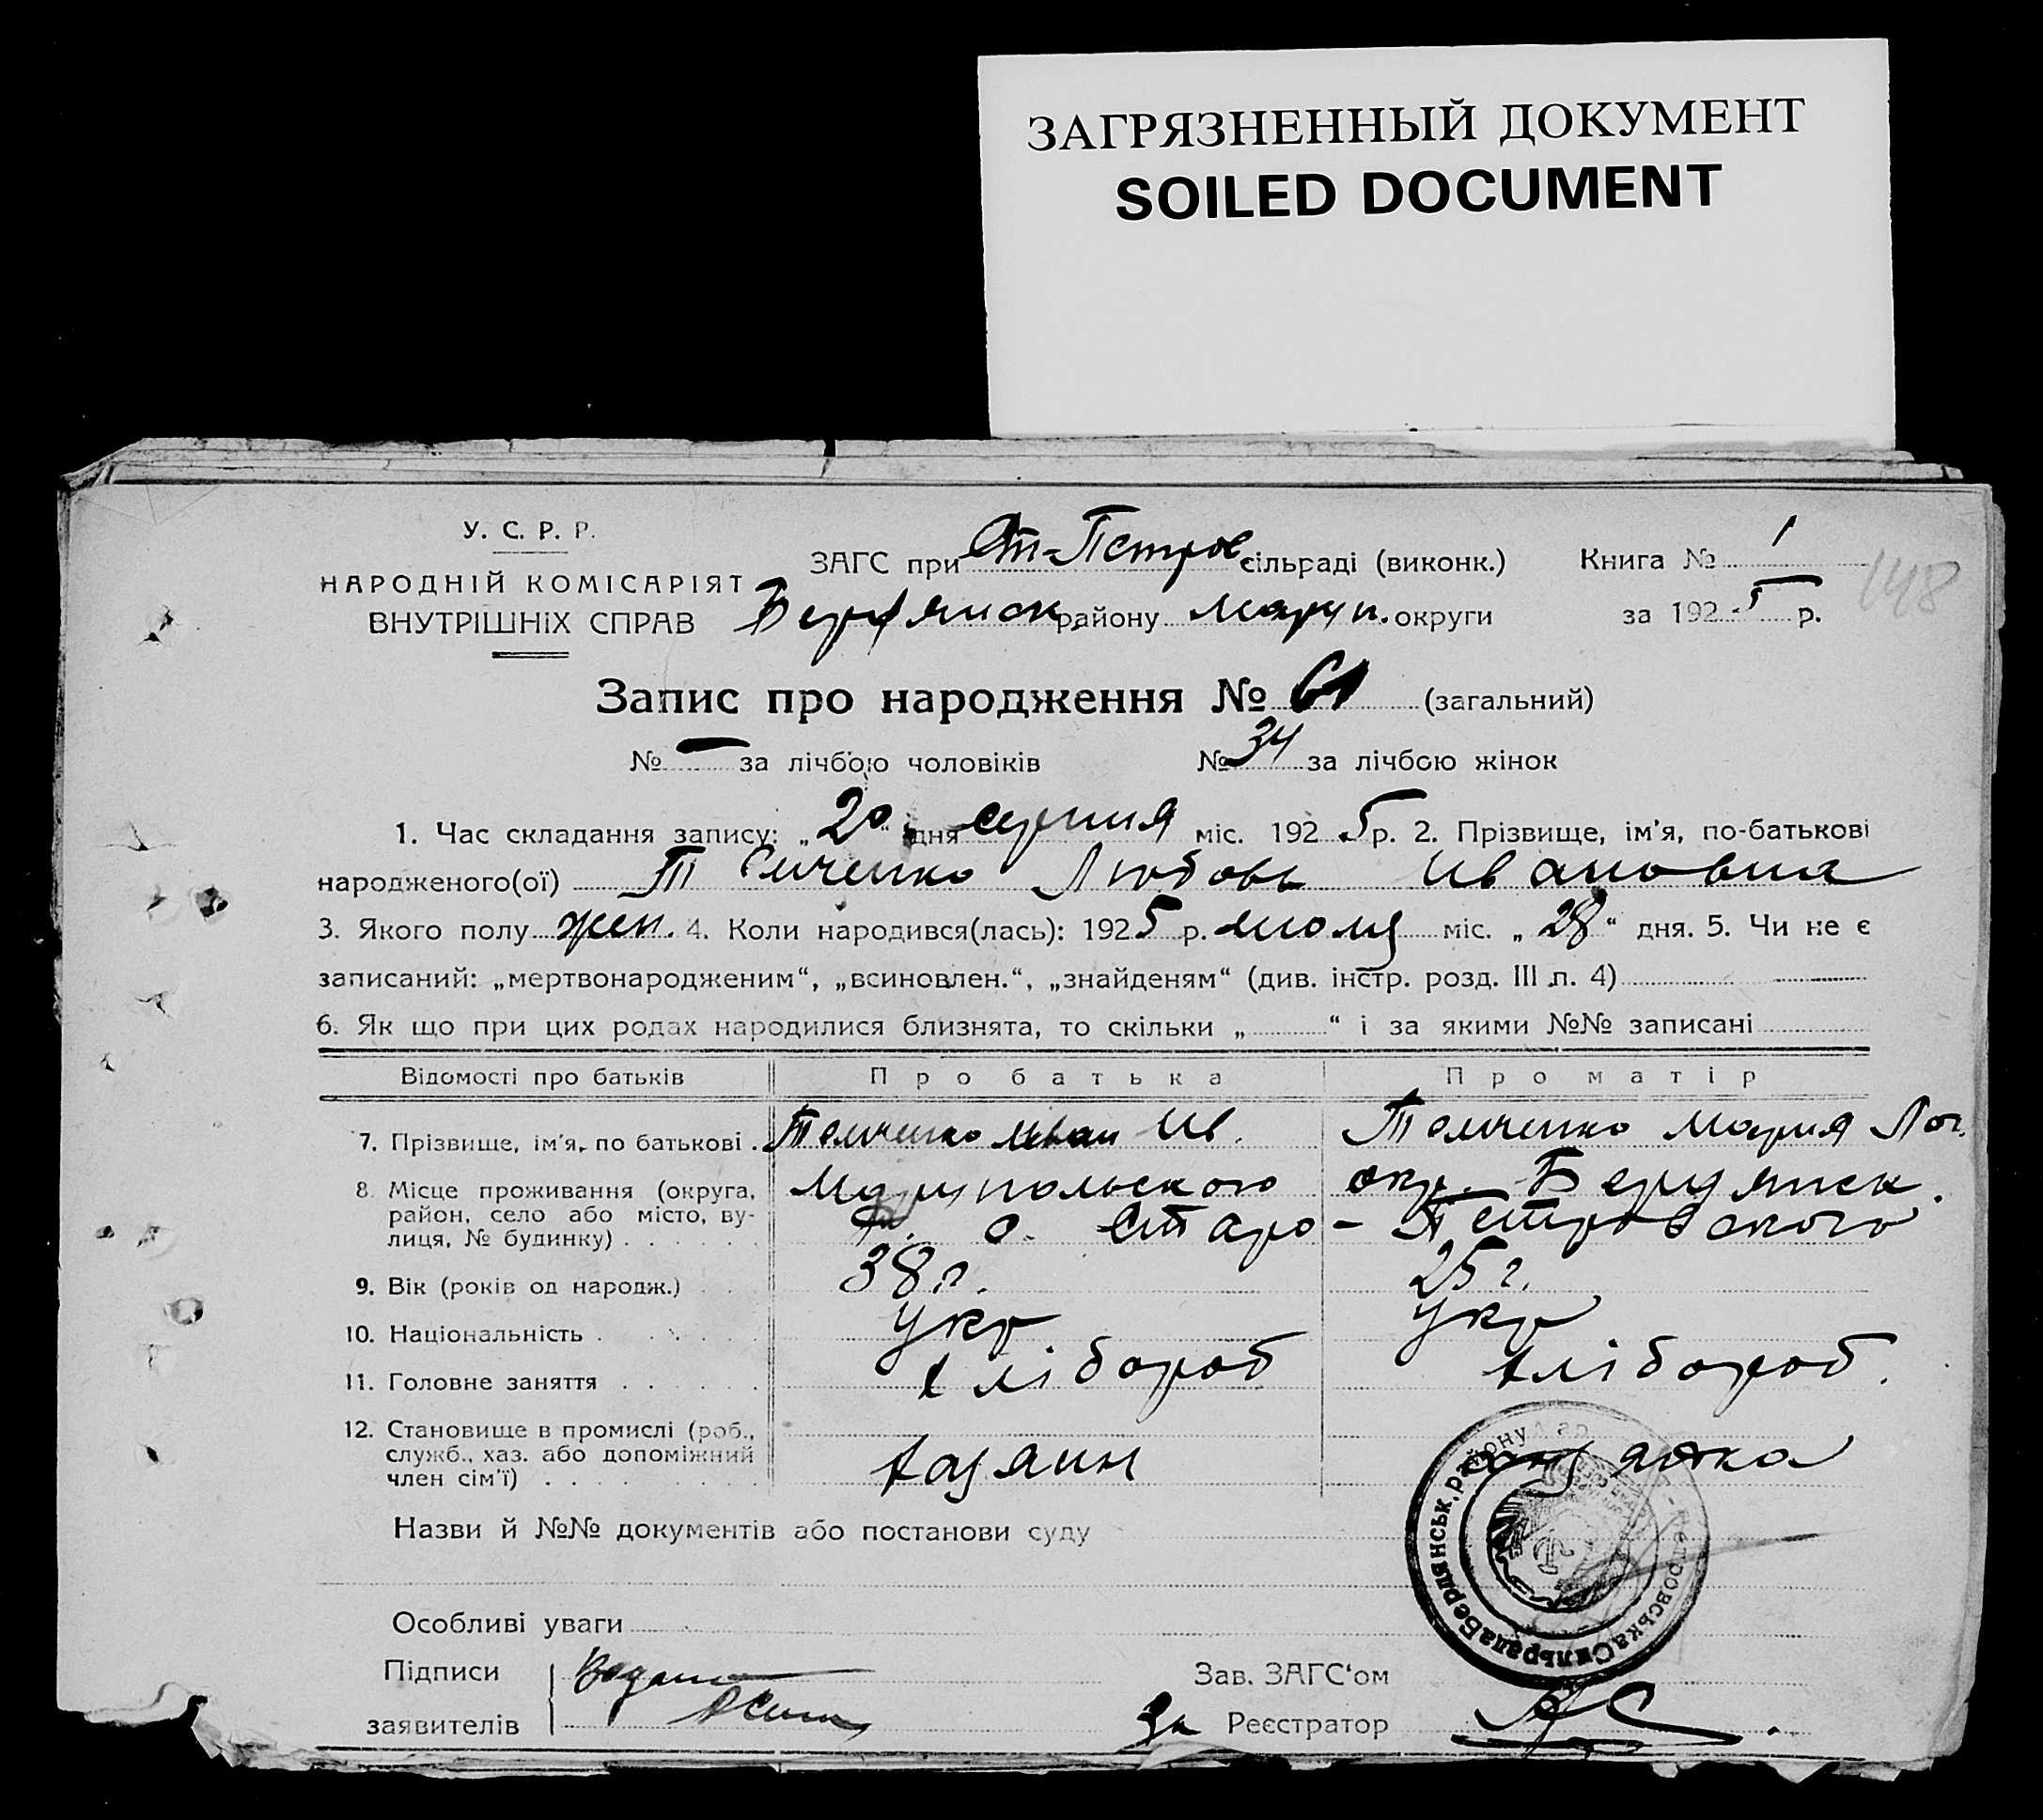 ЗАГРЯЗНЕННЫЙ ДОКУМЕНТ
SOILED DOCUMENT
У. С. Р. Р.
НАРОДНІЙ КОМІСАРІЯТ
ВНУТРІШНІХ СПРАВ
ЗАГС при Ст-Петров сільраді (виконк.)
Бердянск району Мариуп. округи
Книга № 1
за 1925 р.
148
Запис про народження № 61 (загальний)
№ — за лічбою чоловіків № 34 за лічбою жінок
1. Час складання запису: „20“ дня серпня міс. 1925 р. 2. Прізвище, ім'я, по-батькові
народженого(ої) Темченко Любовь Ивановна
3. Якого полу жен. 4. Коли народився(лась): 1925 р. июля міс. „28“ дня. 5. Чи не є
записаний: „мертвонародженим“, „всиновлен.“, „знайденям“ (див. інстр. розд. III п. 4)
6. Як що при цих родах народилися близнята, то скільки „ “ і за якими №№ записані
Відомості про батьків Про батька Про матір
7. Прізвище, ім'я, по батькові . Темченко Иван Ив. Темченко Мария
8. Місце проживання (округа, Мариупольского окр. Бердянск.
район, село або місто, ву-
лиця, № будинку) . . . . . с. Старо-Петровского
9. Вік (років од народж.) . . 38 г. 25 г.
10. Національність . . . . . Укр Укр
11. Головне заняття . . . . . . хлібороб хлібороб.
12. Становище в промислі (роб.,
служб., хаз. або допоміжний
член сім'ї) . . . . . . . . хазяин хазяйка
Назви й №№ документів або постанови суду
Особливі уваги
Підписи
заявителів
Зав. ЗАГС'ом
За Реєстратор
Петровська Сильрада Бердянськ. району